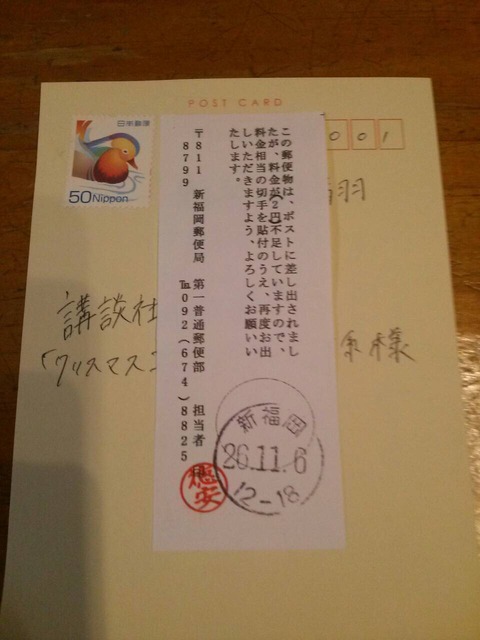 POST CARD
日本郵便
50 Nippon
001
羽
講談社
「クリスマス
係様
この郵便物は、ポストに差し出されまし
たが、料金が(2)円不足していますので、
料金相当の切手を貼付のうえ、再度お出
しいただきますよう、よろしくお願いい
たします。
〒811 新福岡郵便局 第一普通郵便部 担当者
8799 ℡092(674)8825
新福岡
26.11.6
12-18